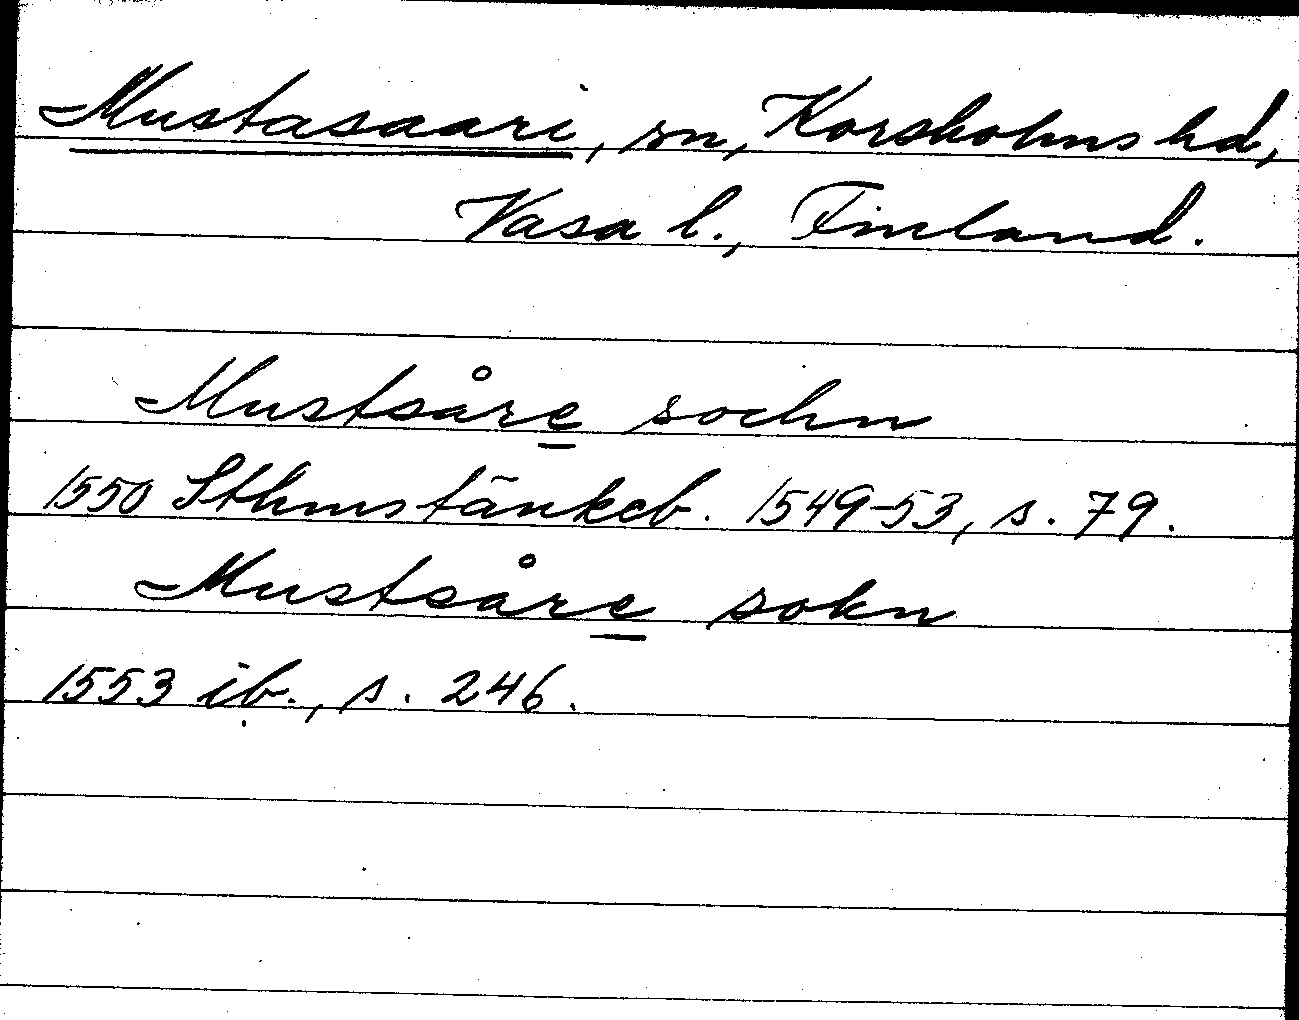 Mustasaari, sn, Korsholms hd,
Vasa l., Finland.
Mustsåre sochn
1550 Sthms tänkeb. 1549-53, s. 79.
Mustsåre sokn
1553 ib., s. 246.